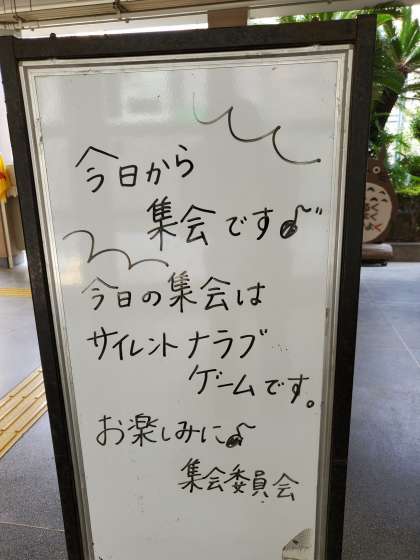 今日から
集会です♪
今日の集会は
サイレントナラブ
ゲームです。
お楽しみに♪
集会委員会